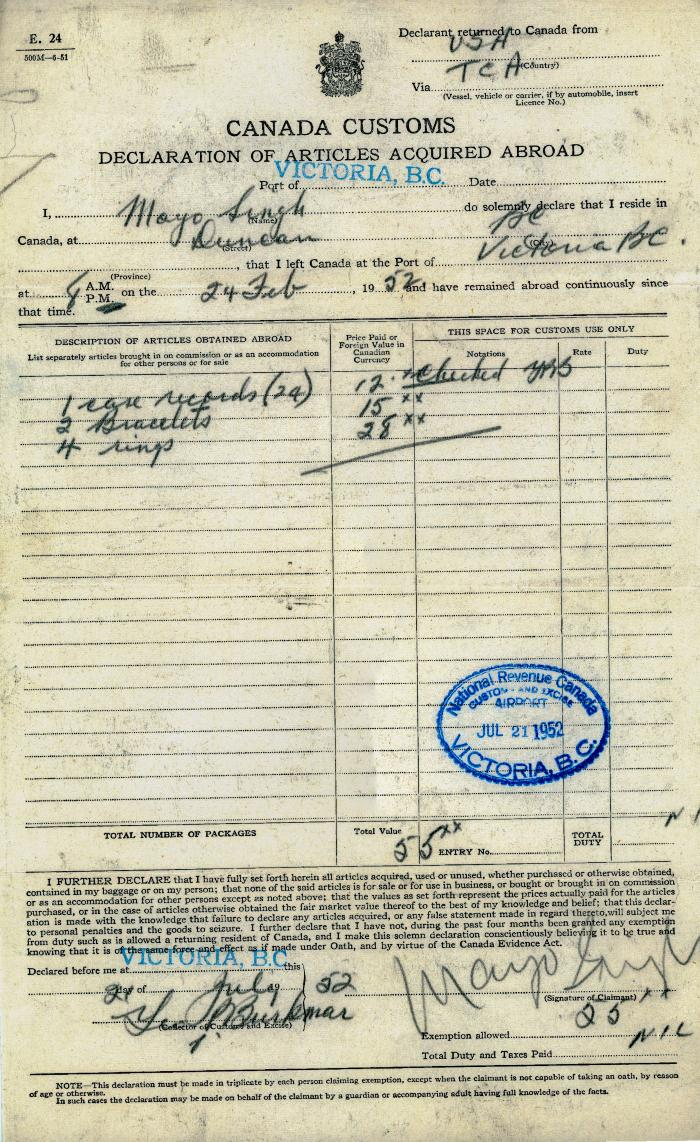 E. 24
500M—6-51
Declarant returned to Canada from
USA
(Country)
Via TCA
(Vessel, vehicle or carrier, if by automobile, insert
Licence No.)
CANADA CUSTOMS
DECLARATION OF ARTICLES ACQUIRED ABROAD
Port of VICTORIA, B.C. Date
I, Mayo Singh do solemnly declare that I reside in
(Name)
Canada, at Duncan BC
(Street) (City)
, that I left Canada at the Port of Victoria BC.
(Province)
at 8 A.M. P.M. on the 24 Feb , 1952 and have remained abroad continuously since
that time.
DESCRIPTION OF ARTICLES OBTAINED ABROAD
List separately articles brought in on commission or as an accommodation
for other persons or for sale
Price Paid or
Foreign Value in
Canadian
Currency
THIS SPACE FOR CUSTOMS USE ONLY
Notations Rate Duty
1 case records (29) 12 xx checked
2 Bracelets 15 xx
4 rings 28 xx
National Revenue Canada
CUSTOMS AND EXCISE
AIRPORT
JUL 21 1952
VICTORIA, B.C.
TOTAL NUMBER OF PACKAGES Total Value 55 xx ENTRY No. TOTAL DUTY
I FURTHER DECLARE that I have fully set forth herein all articles acquired, used or unused, whether purchased or otherwise obtained,
contained in my baggage or on my person; that none of the said articles is for sale or for use in business, or bought or brought in on commission
or as an accommodation for other persons except as noted above; that the values as set forth represent the prices actually paid for the articles
purchased, or in the case of articles otherwise obtained the fair market value thereof to the best of my knowledge and belief; that this declar-
ation is made with the knowledge that failure to declare any articles acquired, or any false statement made in regard thereto, will subject me
to personal penalties and the goods to seizure. I further declare that I have not, during the past four months been granted any exemption
from duty such as is allowed a returning resident of Canada, and I make this solemn declaration conscientiously believing it to be true and
knowing that it is of the same force and effect as if made under Oath, and by virtue of the Canada Evidence Act.
Declared before me at VICTORIA, B.C. this
day of July 19 52
Mayo Singh
(Signature of Claimant)
(Collector of Customs and Excise)
Exemption allowed 25 xx
Total Duty and Taxes Paid NIL
NOTE—This declaration must be made in triplicate by each person claiming exemption, except when the claimant is not capable of taking an oath, by reason
of age or otherwise.
In such cases the declaration may be made on behalf of the claimant by a guardian or accompanying adult having full knowledge of the facts.